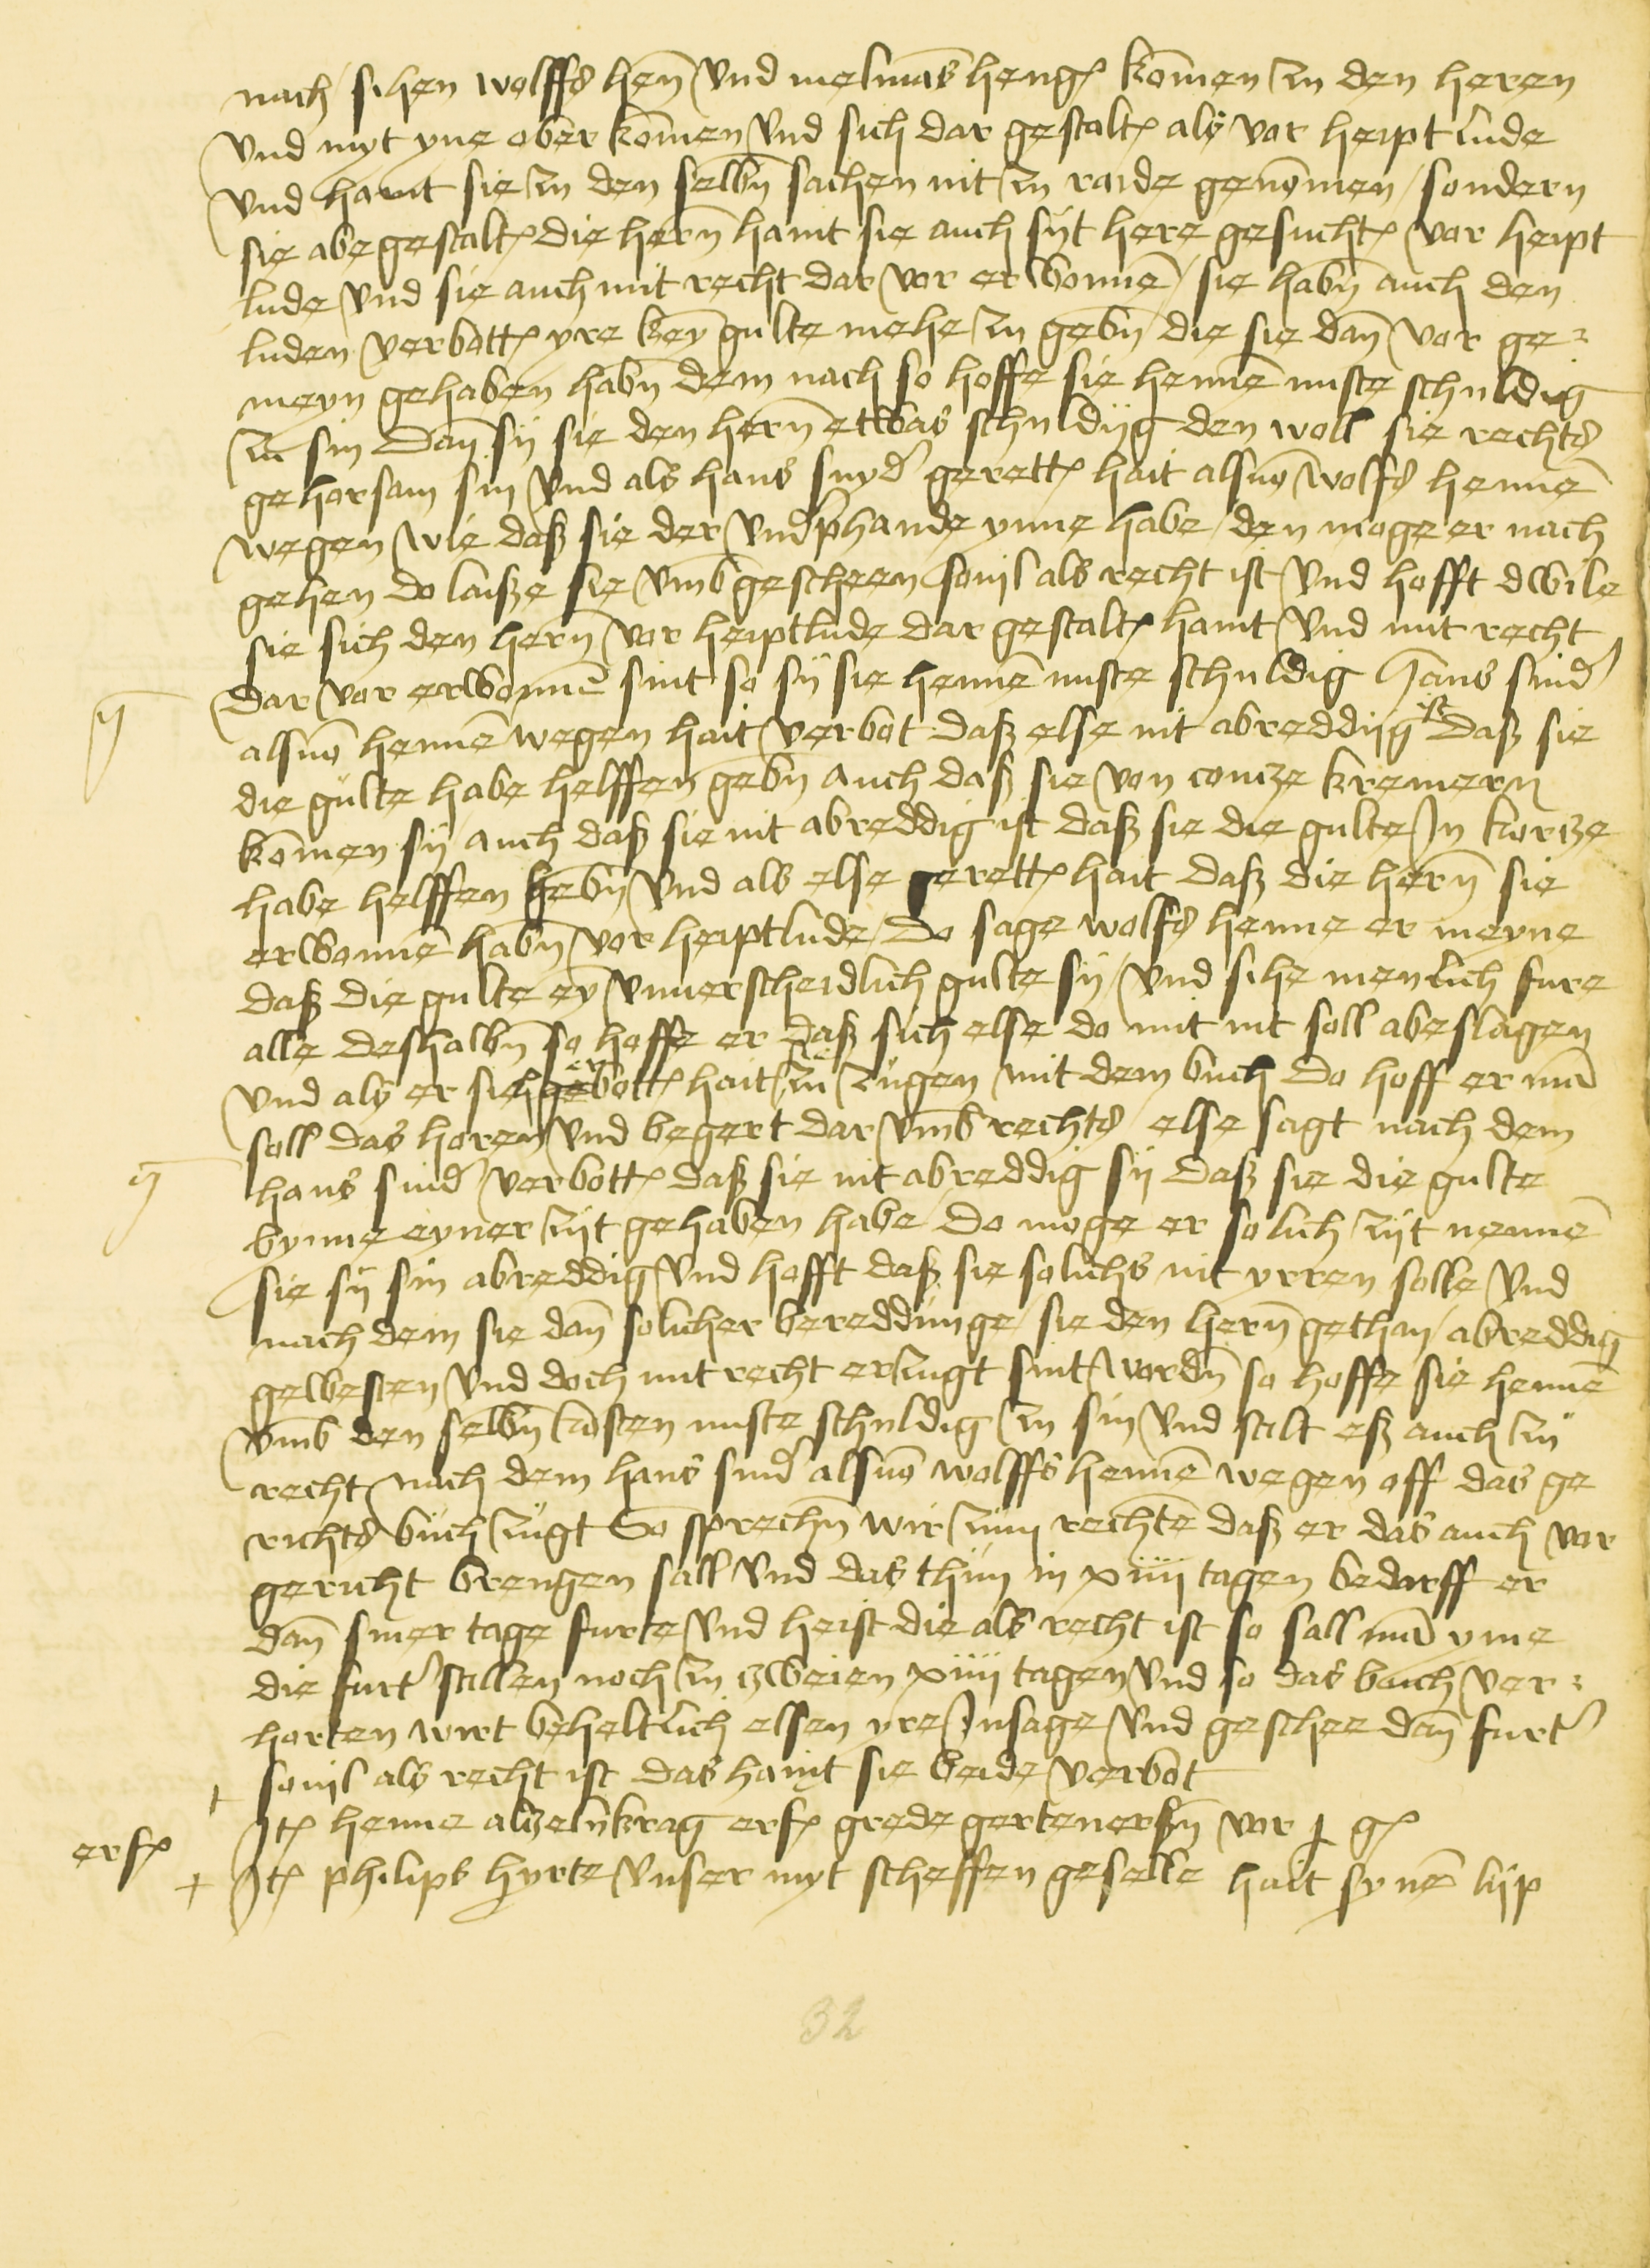 nach sihen wolffs hen̄ vnd melmās heng komen zu den heren
vnd myt yne ober komen vnd sich dar gestalt als vor heipt lude
vnd haint sie zu den selbn̄ sachen nit zu raide genōmen / sondern
sie abe gestalt die hern̄ haint sie auch syt here gesucht vor heipt
lude vnd sie auch mit recht dar vor erwonnē / sie habn̄ auch den
luden verbott yre key gulte mehe zu gebn̄ die sie dan̄ vor ge-
meyn gehaben habn̄ dem nach so hoffe sie hennē nuste schuldig
zu sin Dan̄ sij sie den hern̄ etwas schuldijg den woll sie rechts
gehorsam sin vnd als hans snyd' gerett hait alsuō wolfs hennē
wegen wie daß sie der vnd'phande ynne habe / den moge er nach
gehen do laiße sie vmb gescheen souil als recht ist vnd hofft dwile
sie sich den hern̄ vor heiptlude dar gestalt haint vnd mit recht
dar vor erwonnē sint so sij sie hennē nuste schuldig Hans snid'
alsuō hennē wegen hait verbot daß else nit abreddijg ist daß sie
die gulte habe helffen gebn̄ auch daß sie von contze kremern
komen sij auch daß sie nit abreddig ist daß sie die gulte In kortze
habe helffen hebn̄ vnd als else gerett hait daß die hern̄ sie
erwonnē habn̄ vor heiptlude / Do sage wolfs henne er meyne
daß die gulte ey vnuerscheidlich gulte sij / vnd sihe menlich fure
alle deshalbn̄ so hoffe er daß sich else do mit nit soll abeslagen
vnd als er sich gebott hait zu zugen mit dem buch Do hoff er mā
soll das horen vnd begert dar vmb rechts else sagt nach dem
hans snid' verbott daß sie nit abreddig sij daß sie die gulte
bynne eyner zijt gehaben habe / Do moge er solich zijt nennē
sie sij sin abreddig vnd hofft daß sie solichs nit yrren solle vnd
nach dem sie dan̄ solicher bereddunge / sie den hern̄ gethan / abreddig
gewesten vnd doch mit recht erzugt sint wordn̄ so hoffe sie hennē
vmb den selbn̄ kosten nuste schuldig zu sin vnd stalt eß auch zu
recht nach dem hans snid' alsuō wolffs hennē wegen off das ge
richts buch zugt So sprechn̄ wir zum rechtē daß er das auch vor
gericht brengen sall vnd das thun in xiiii tagen bedarff er
dan̄ siner tage furte vnd heist die als recht ist so sall mā yme
die furt' stillen noch zu zweien xiiii tagen vnd so das buch ver-
horten wirt beheltlich elsen yre Insage vnd geschee dan̄ furt'
souil als recht ist das haint sie beide verbot
It henne aldzelnkrag erf grede gertenerßn̄ vor j g
erf It philips hyrte vnser myt scheffen geselle hait synē lijp
32